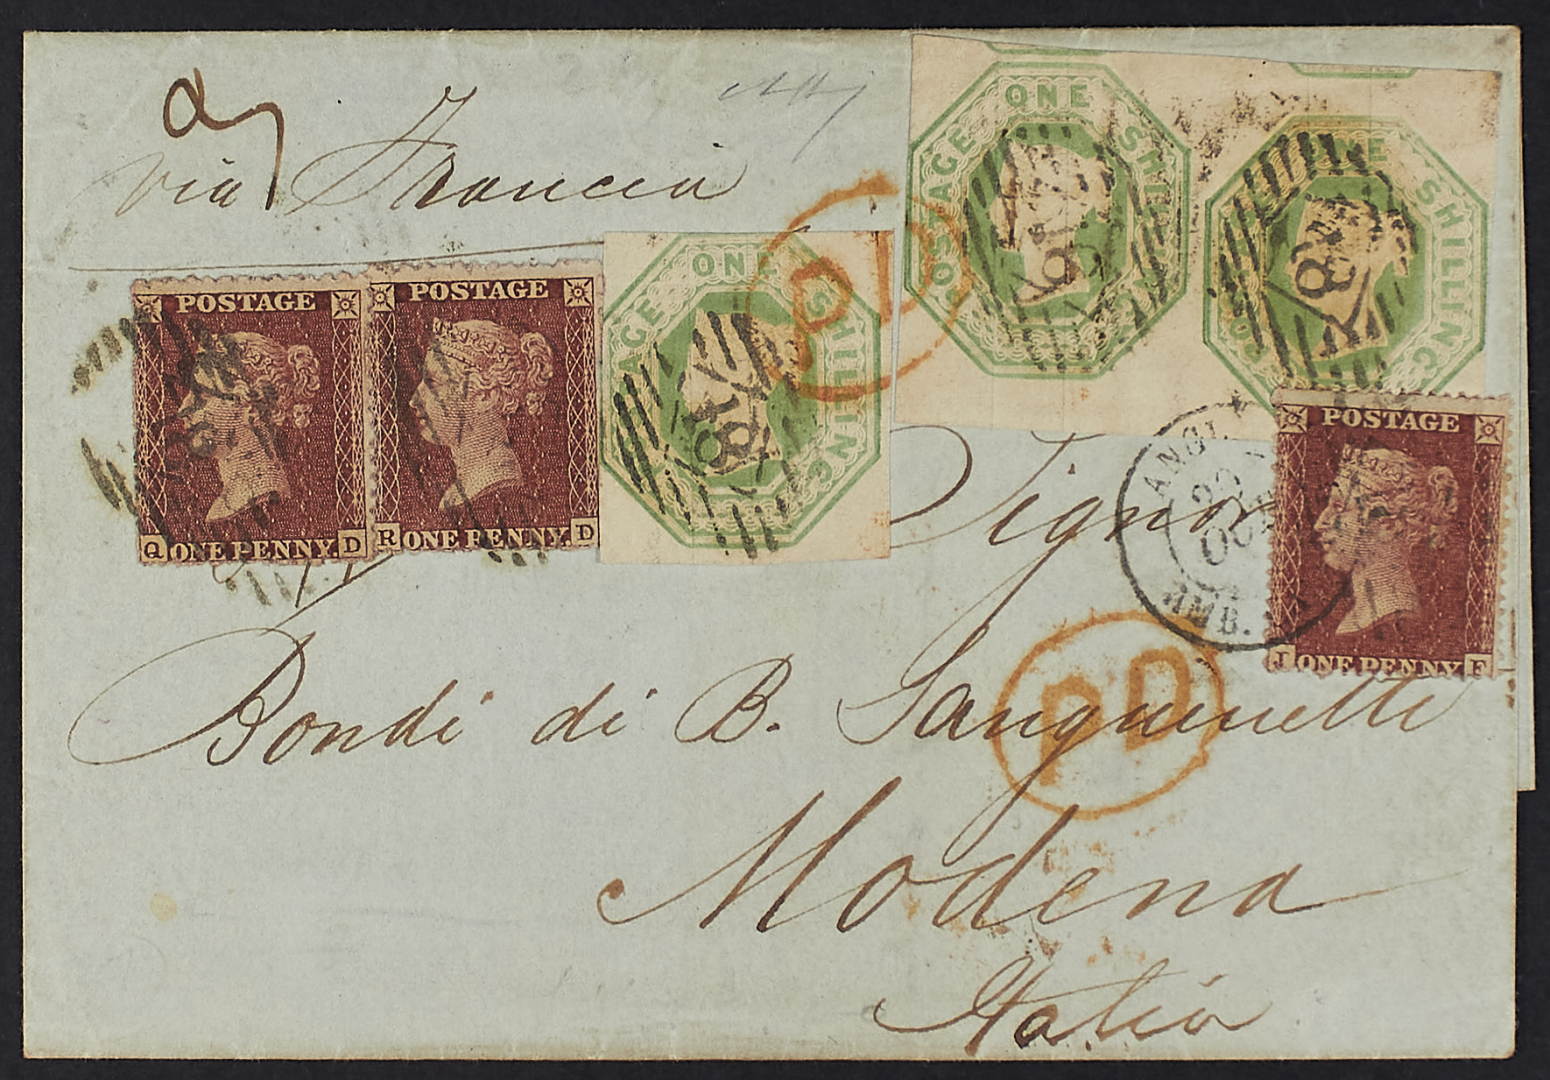 via Francia
POSTAGE
Q ONE PENNY D
POSTAGE
R ONE PENNY D
POSTAGE ONE SHILLING
POSTAGE ONE SHILLING
POSTAGE ONE SHILLING
PD
POSTAGE
J ONE PENNY F
ANGL.
20
OCT
AMB.
Signor
Bondi di B. Sanguinetti
PD
Modena
Italia